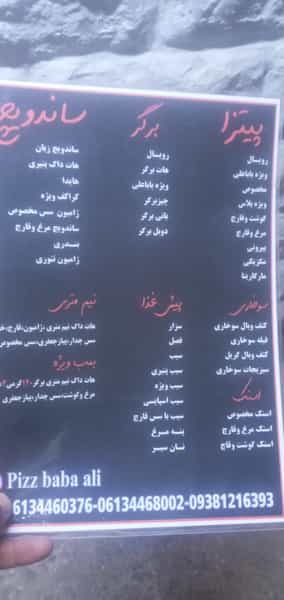 پیتزا
رویال
ویژه باباعلی
مخصوص
ویژه پلاس
گوشت وقارچ
مرغ وقارچ
پپرونی
مکزیکی
مارگاریتا
برگر
رویال
هات برگر
ویژه باباعلی
چیزبرگر
بانی برگر
دوبل برگر
ساندویچ
ساندویچ زبان
هات داگ پنیری
هایدا
کراکف ویژه
ژامبون سس مخصوص
ساندویچ مرغ وقارچ
بندری
ژامبون تنوری
سوخاری
کتف وبال سوخاری
فیله سوخاری
کتف وبال گریل
سبزیجات سوخاری
استیک
استک مخصوص
استک مرغ وقارچ
استک گوشت وقاچ
پیش غذا
سزار
فصل
سیب
سیب پنیری
سیب ویژه
سیب اسپایسی
سیب با سس قارچ
پنه مرغ
نان سیر
نیم متری
هات داگ نیم متری ،ژامبون،قارچ،
سس چدار،پیازجعفری،سس مخصوص
بمب ویژه
هات داگ نیم متری برگر۱۲۰گرمی
مرغ وگوشت،سس چدار،پیازجعفری
Pizz baba ali
6134460376-06134468002-09381216393